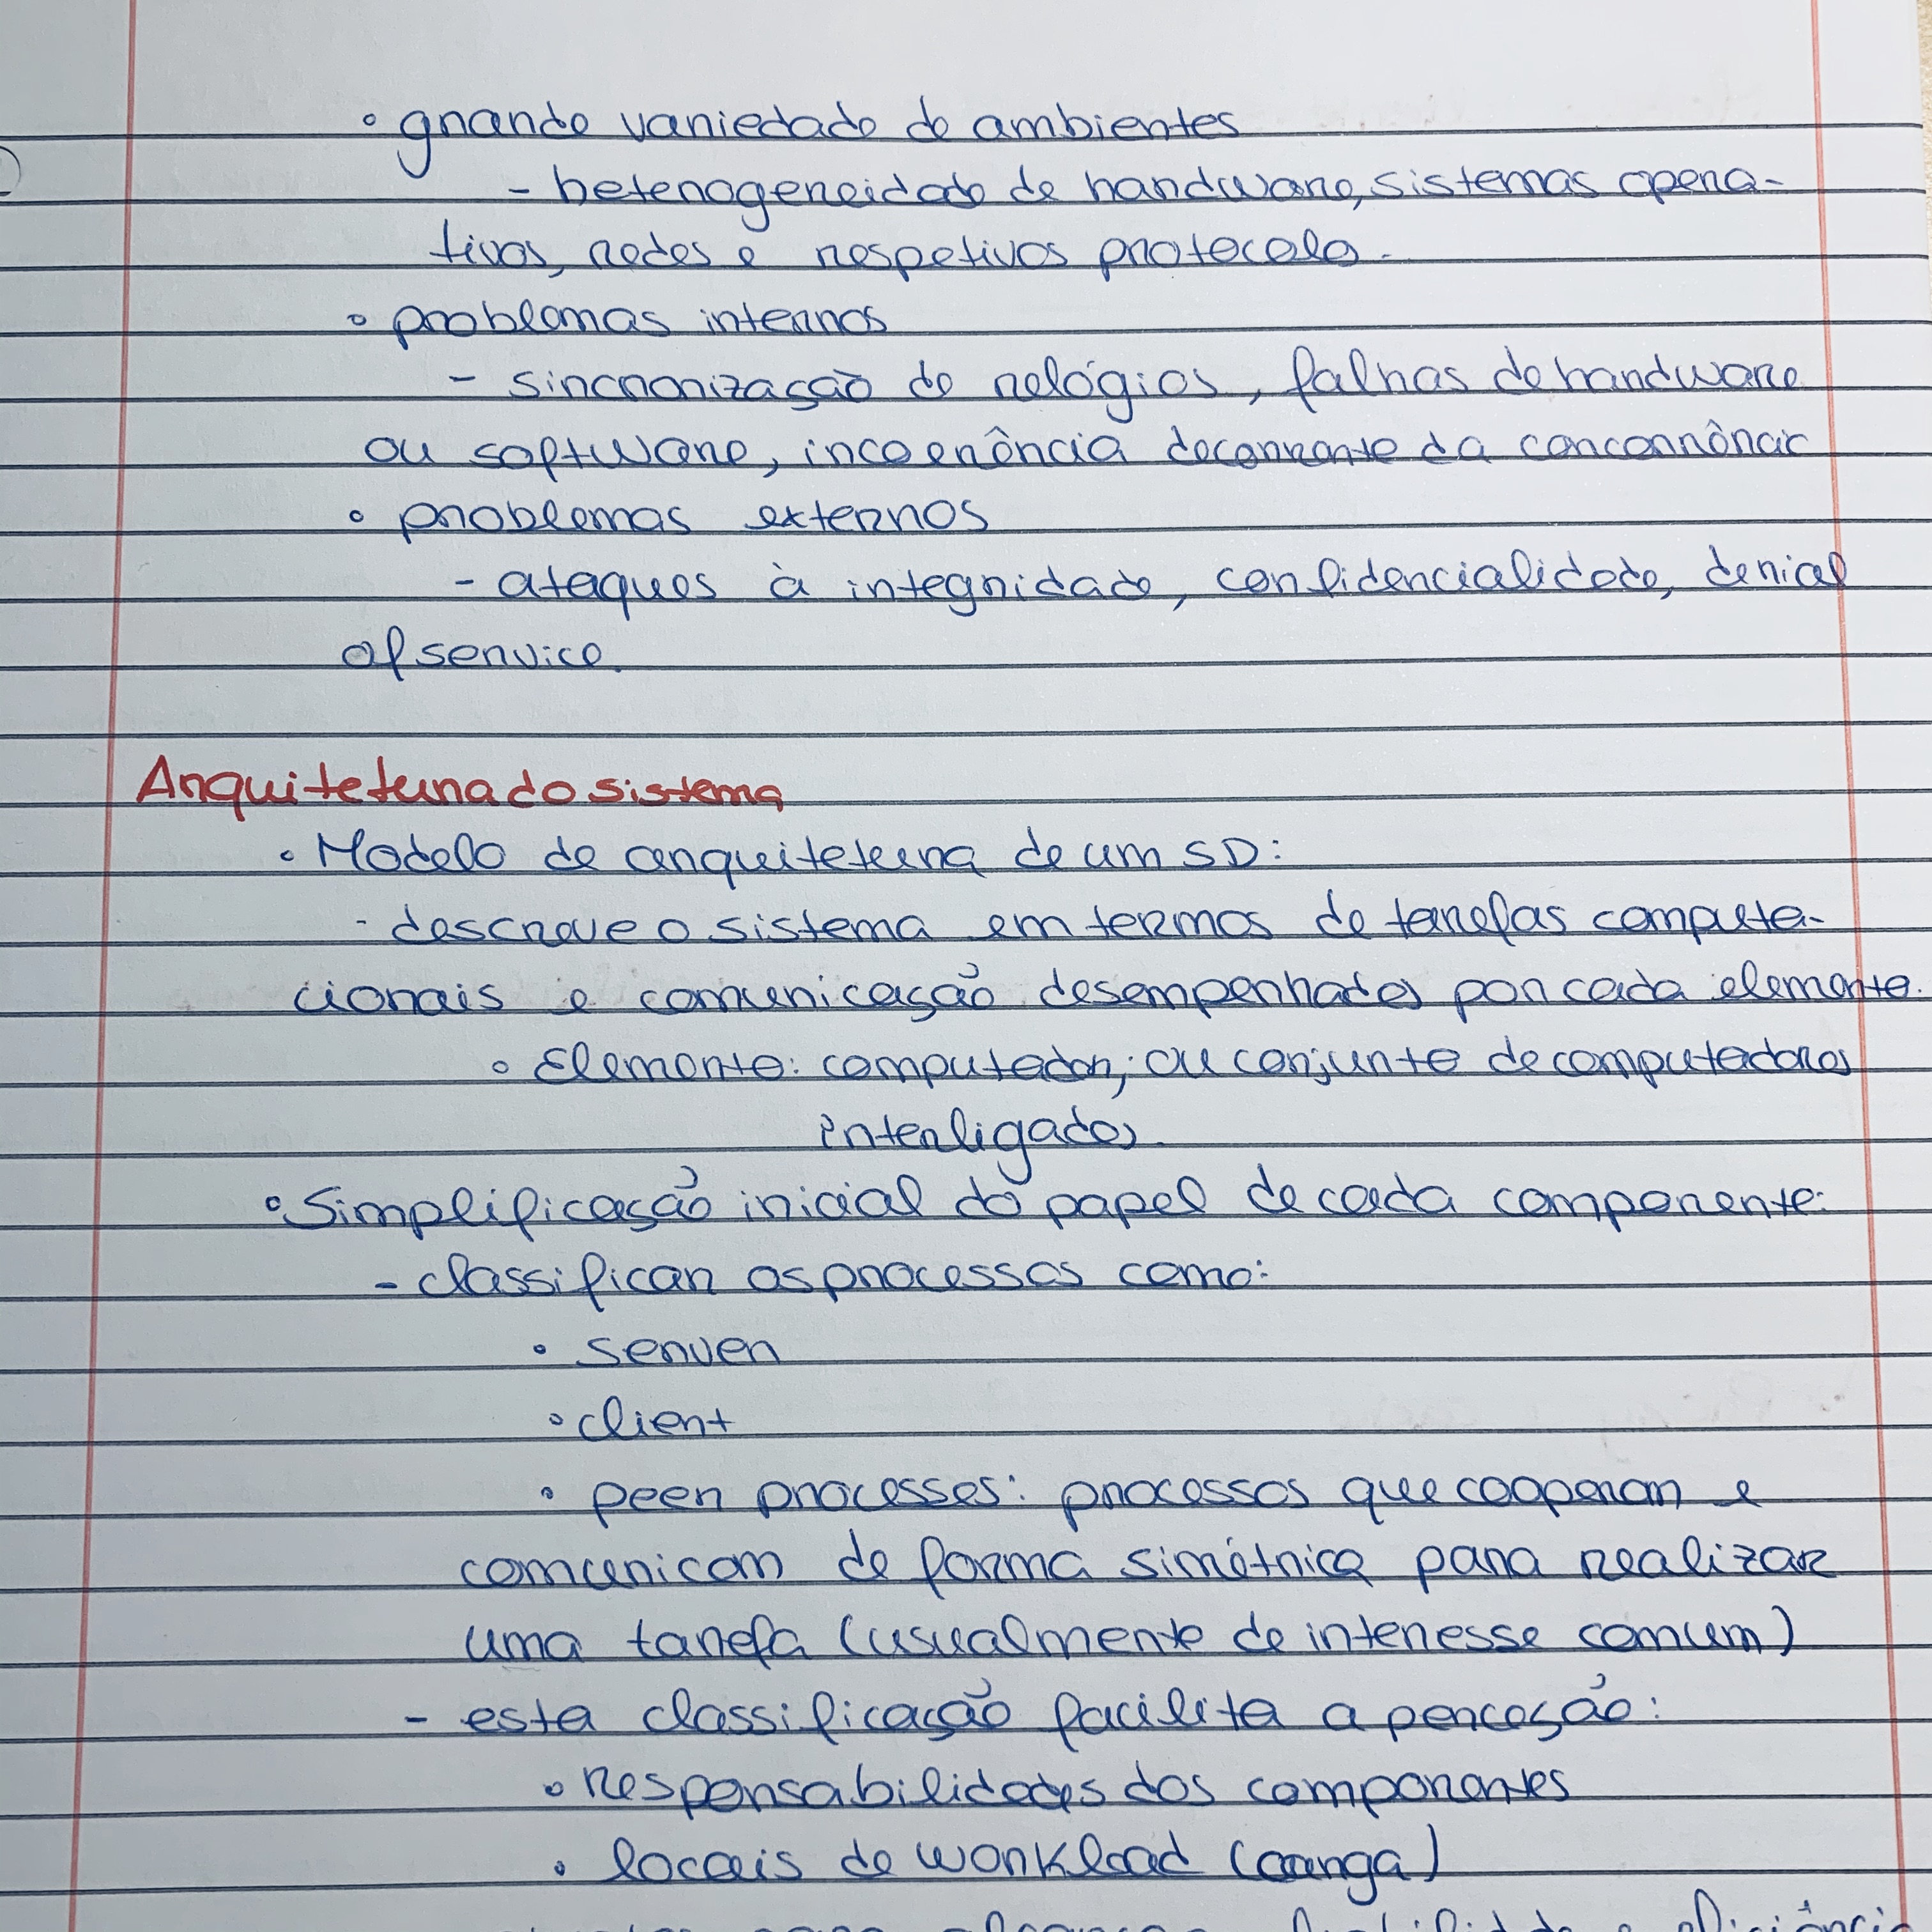 • grande variedade de ambientes
- heterogeneidade de hardware, sistemas opera-
tivos, redes e respetivos protocolo.
• problemas internos
- sincronização de relógios, falhas de hardware
ou software, incoerência decorrente da concorrência
• problemas externos
- ataques à integridade, confidencialidade, denial
of service.
Arquitetura do sistema
• Modelo de arquitetura de um SD:
- descreve o sistema em termos de tarefas computa-
cionais e comunicação desempenhados por cada elemento.
• Elemento: computador, ou conjunto de computadores
interligados.
• Simplificação inicial do papel de cada componente:
- classificar os processos como:
• server
• client
• peer processes: processos que cooperam e
comunicam de forma simétrica para realizar
uma tarefa (usualmente de interesse comum)
- esta classificação facilita a perceção:
• Responsabilidades dos componentes
• locais de workload (carga)